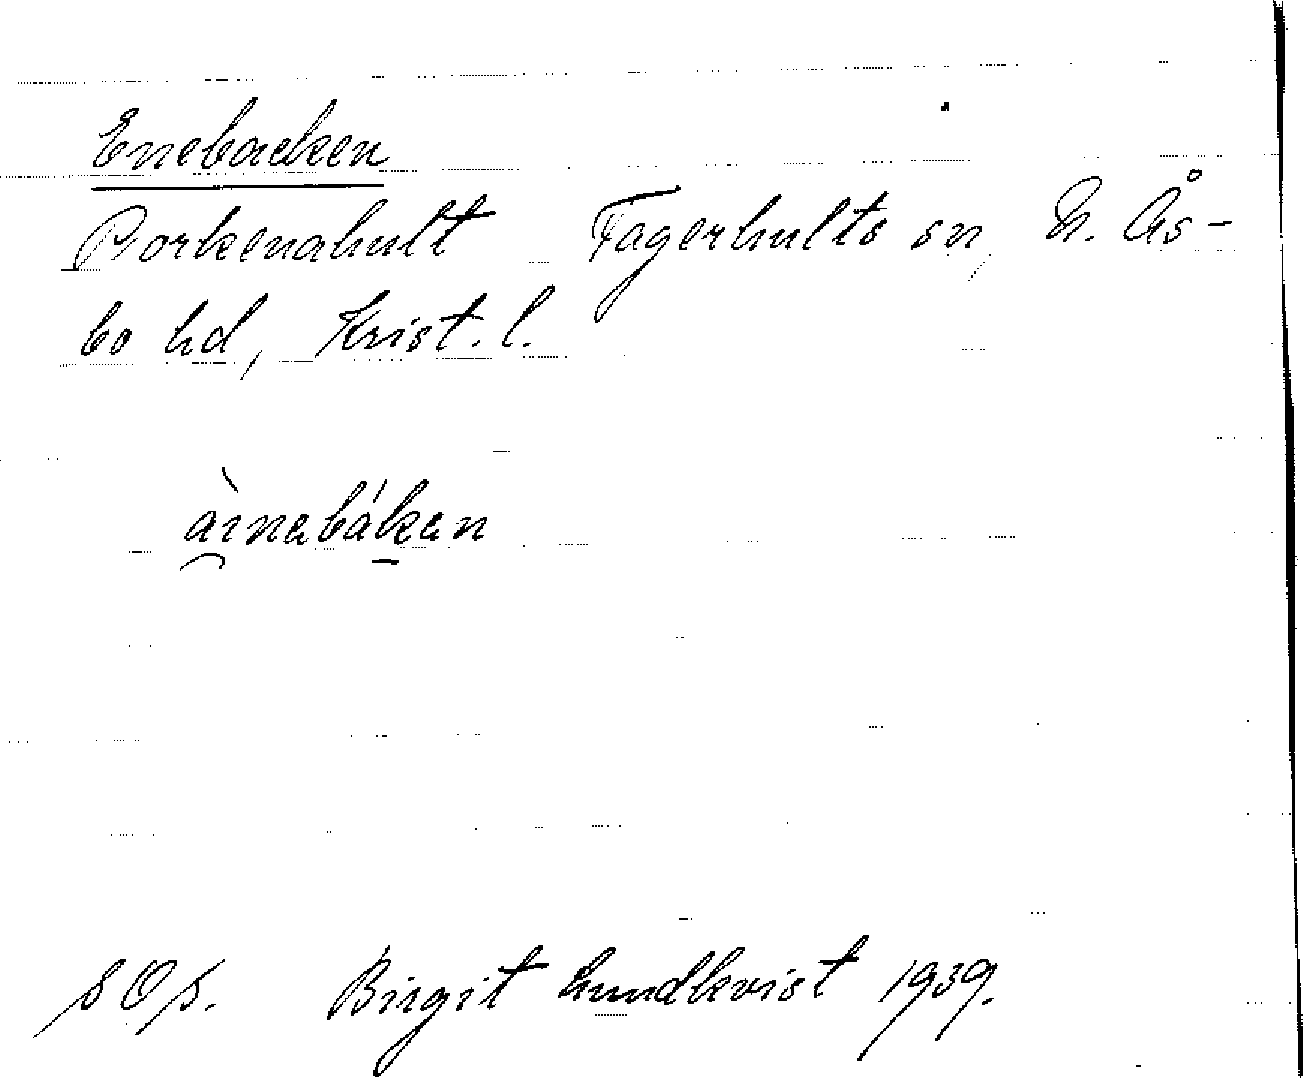 Enebacken
Porkenahult Fagerhults sn, N. Ås-
bo hd, Krist. l.
àinabákan
Birgit Lundkvist 1939.